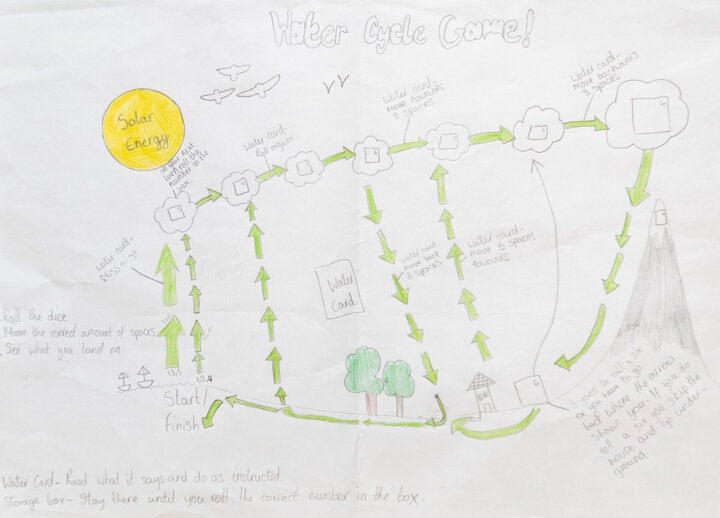 Water Cycle Game!
Solar
Energy
on your next
turn roll the
number in the
box.
Water card-
Roll again
Water card-
Move towards
2 spaces
Water card-
move backwards
3 spaces
Water card-
Miss a go
Water
Card
water card
move back
3 spaces.
Water card-
move 5 spaces
towards
.Roll the dice
Move the correct amount of spaces
. See what you land on.
Start
Finish
3 goes to roll a six
or you have to go
back where the arrow
shows you. If you do
roll a six you skip the
house and go under-
ground.
Water Card- Read what it says and do as instructed
Storage box- Stay there until you roll the correct number in the box.